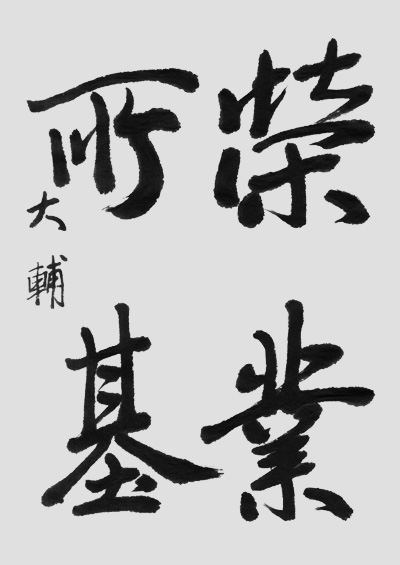 榮業
所基
大輔